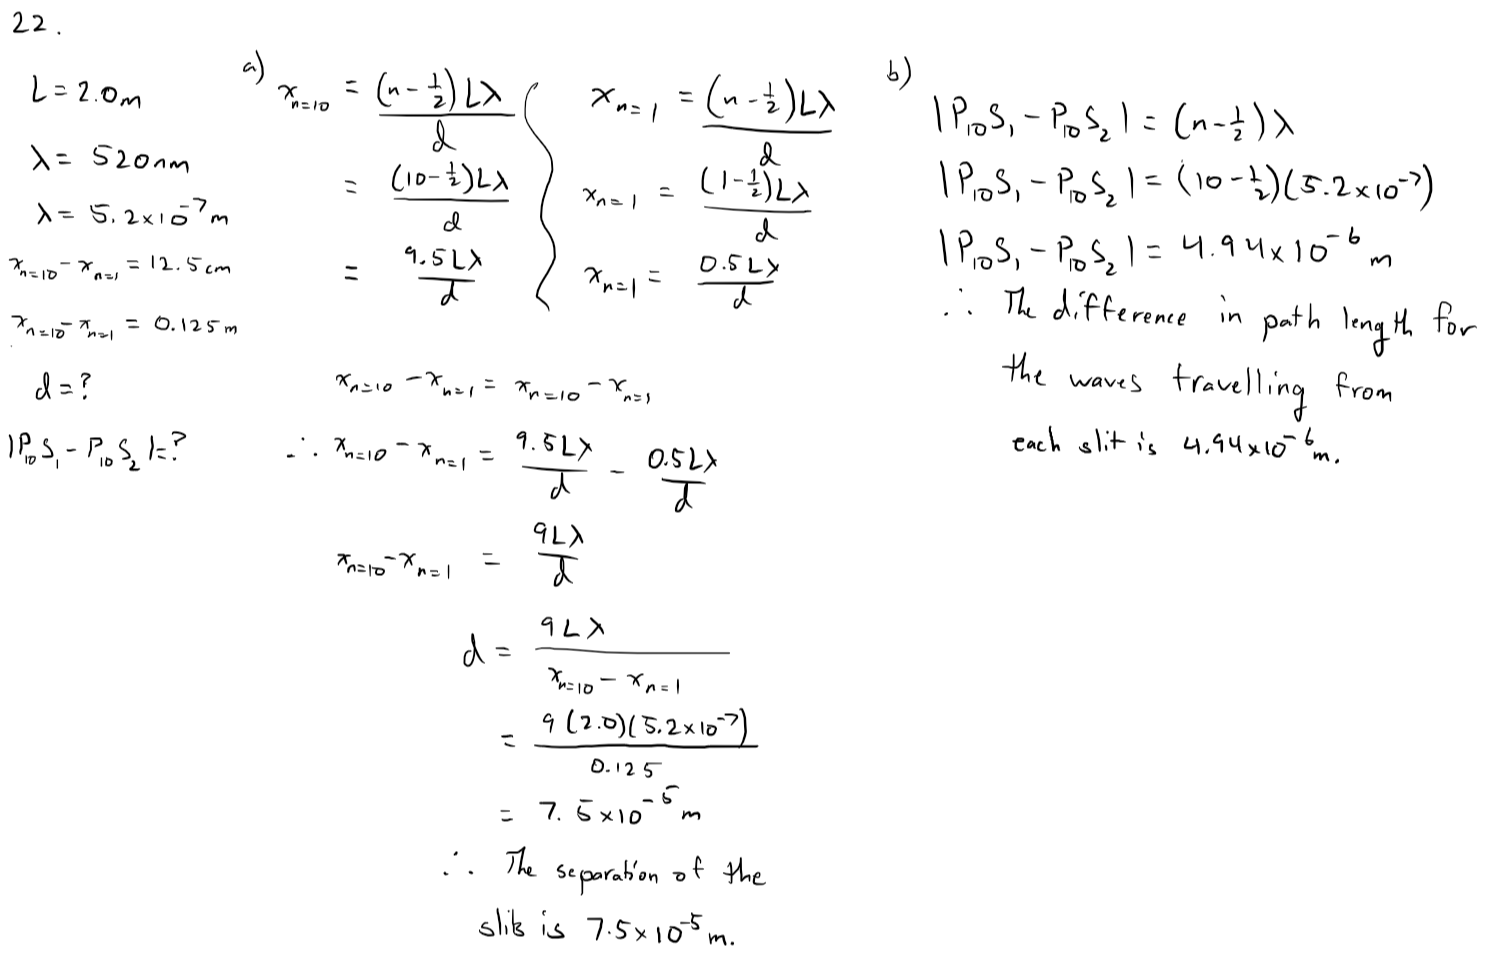 22.
L = 2.0m
λ = 520nm
λ = 5.2×10⁻⁷m
xₙ₌₁₀ - xₙ₌₁ = 12.5cm
xₙ₌₁₀ - xₙ₌₁ = 0.125m
d = ?
|P₁₀S₁ - P₁₀S₂| = ?
a) xₙ₌₁₀ = (n - 1/2)Lλ / d
= (10 - 1/2)Lλ / d
= 9.5Lλ / d
xₙ₌₁ = (n - 1/2)Lλ / d
xₙ₌₁ = (1 - 1/2)Lλ / d
xₙ₌₁ = 0.5Lλ / d
xₙ₌₁₀ - xₙ₌₁ = xₙ₌₁₀ - xₙ₌₁
∴ xₙ₌₁₀ - xₙ₌₁ = 9.5Lλ / d - 0.5Lλ / d
xₙ₌₁₀ - xₙ₌₁ = 9Lλ / d
d = 9Lλ / xₙ₌₁₀ - xₙ₌₁
= 9(2.0)(5.2×10⁻⁷) / 0.125
= 7.5×10⁻⁵m
∴ The separation of the
slits is 7.5×10⁻⁵m.
b)
|P₁₀S₁ - P₁₀S₂| = (n - 1/2)λ
|P₁₀S₁ - P₁₀S₂| = (10 - 1/2)(5.2×10⁻⁷)
|P₁₀S₁ - P₁₀S₂| = 4.94×10⁻⁶m
∴ The difference in path length for
the waves travelling from
each slit is 4.94×10⁻⁶m.